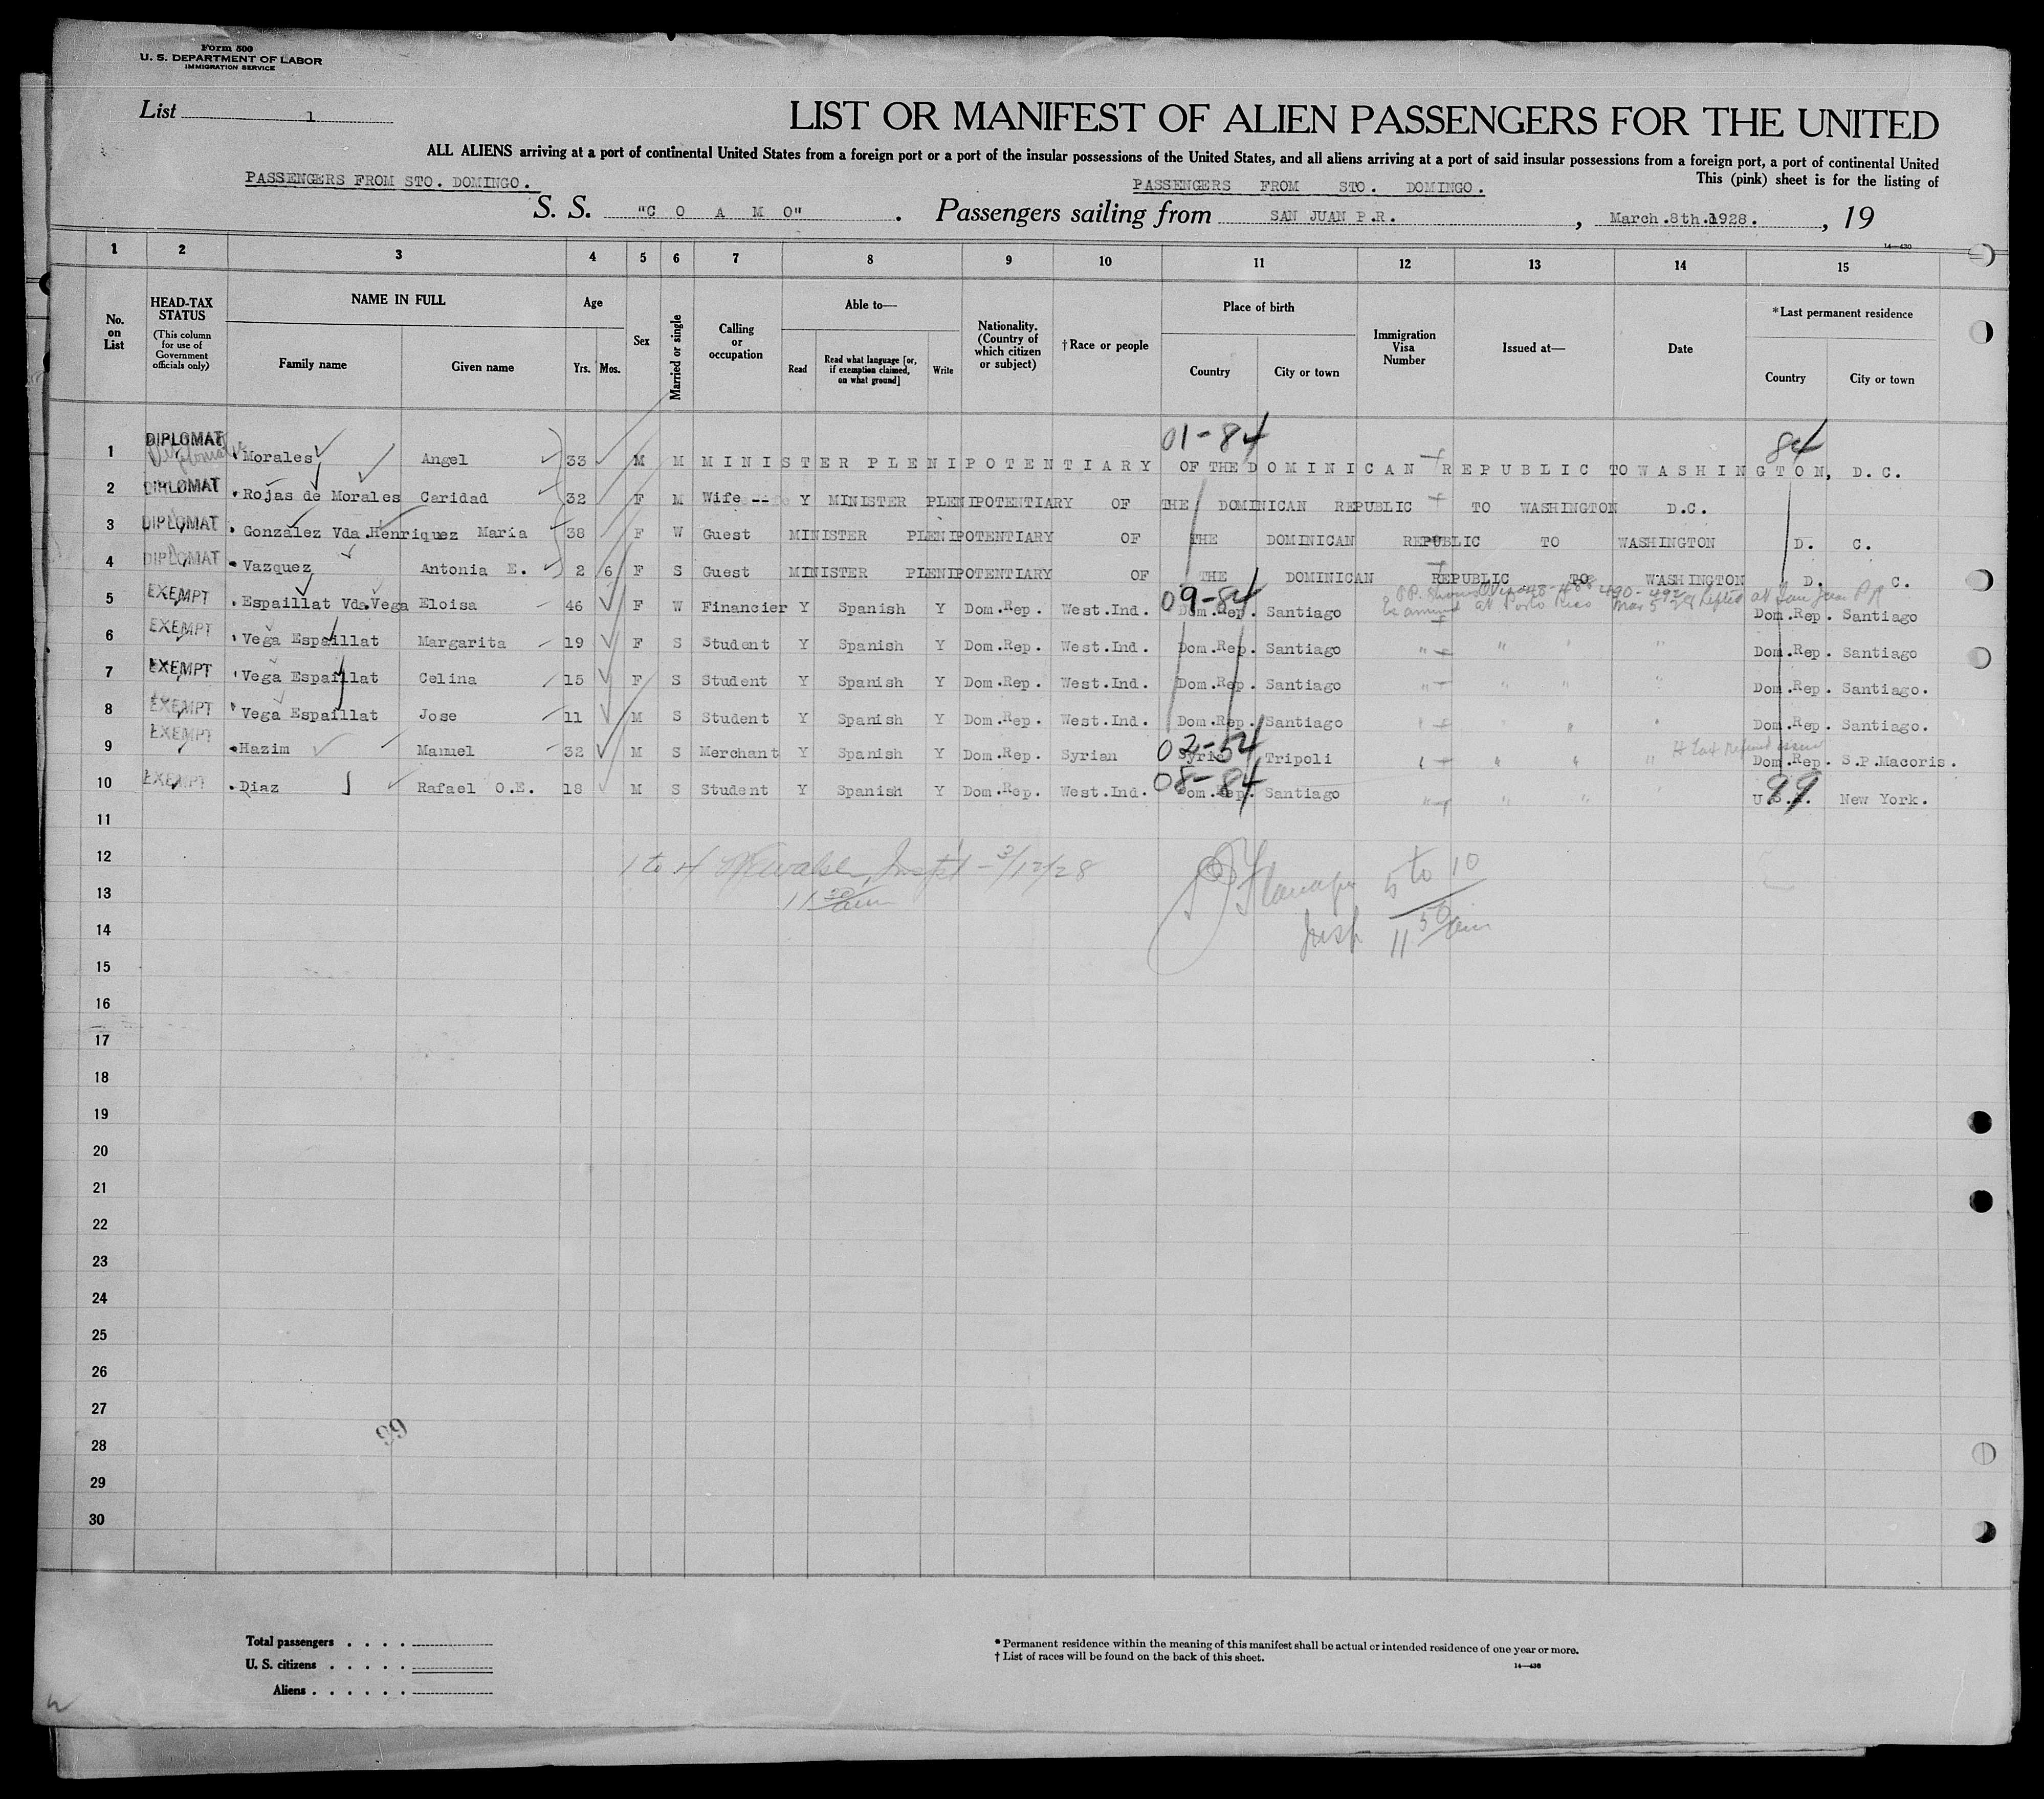 Form 500
U. S. DEPARTMENT OF LABOR
IMMIGRATION SERVICE
List 1
LIST OR MANIFEST OF ALIEN PASSENGERS FOR THE UNITED
ALL ALIENS arriving at a port of continental United States from a foreign port or a port of the insular possessions of the United States, and all aliens arriving at a port of said insular possessions from a foreign port, a port of continental United
PASSENGERS FROM STO. DOMINGO. PASSENGERS FROM STO. DOMINGO. This (pink) sheet is for the listing of
S. S. "C O A M O". Passengers sailing from SAN JUAN P.R., March.8th.1928., 19
14—430
1 2 3 4 5 6 7 8 9 10 11 12 13 14 15
No. on List
HEAD-TAX STATUS (This column for use of Government officials only)
NAME IN FULL Family name Given name
Age Yrs. Mos.
Sex
Married or single
Calling or occupation
Able to— Read Read what language [or, if exemption claimed, on what ground] Write
Nationality. (Country of which citizen or subject)
†Race or people
Place of birth Country City or town
Immigration Visa Number
Issued at—
Date
*Last permanent residence Country City or town
01-84 84
1 DIPLOMAT Diplomat Morales Angel 33 M M MINISTER PLENIPOTENTIARY OF THE DOMINICAN REPUBLIC TO WASHINGTON, D.C.
2 DIPLOMAT Rojas de Morales Caridad 32 F M Wife Y MINISTER PLENIPOTENTIARY OF THE DOMINICAN REPUBLIC TO WASHINGTON D.C.
3 DIPLOMAT Gonzalez Vda.Henriquez Maria 38 F W Guest MINISTER PLENIPOTENTIARY OF THE DOMINICAN REPUBLIC TO WASHINGTON D. C.
4 DIPLOMAT Vazquez Antonia E. 2 6 F S Guest MINISTER PLENIPOTENTIARY OF THE DOMINICAN REPUBLIC TO WASHINGTON D. C.
at San Juan PR
5 EXEMPT Espaillat Vda.Vega Eloisa 46 F W Financier Y Spanish Y Dom.Rep. West.Ind. 09-84 Dom.Rep. Santiago Dom.Rep. Santiago
6 EXEMPT Vega Espaillat Margarita 19 F S Student Y Spanish Y Dom.Rep. West.Ind. Dom.Rep. Santiago " " " " Dom.Rep. Santiago
7 EXEMPT Vega Espaillat Celina 15 F S Student Y Spanish Y Dom.Rep. West.Ind. Dom.Rep. Santiago " " " " Dom.Rep. Santiago.
8 EXEMPT Vega Espaillat Jose 11 M S Student Y Spanish Y Dom.Rep. West.Ind. Dom.Rep. Santiago " " " Dom.Rep. Santiago.
9 EXEMPT Hazim Manuel 32 M S Merchant Y Spanish Y Dom.Rep. Syrian 02-54 Syria Tripoli " " " " Dom.Rep. S.P.Macoris.
10 EXEMPT Diaz Rafael O.E. 18 M S Student Y Spanish Y Dom.Rep. West.Ind. 08-84 Dom.Rep. Santiago " " " " U.S.A. 99 New York.
11
12 1 to 4 3/12/28
13 11 30 am 5 to 10
14 Insp 11 50 am
15
16
17
18
19
20
21
22
23
24
25
26
27
99
28
29
30
Total passengers . . . .
U. S. citizens . . . . .
Aliens . . . . . .
* Permanent residence within the meaning of this manifest shall be actual or intended residence of one year or more.
† List of races will be found on the back of this sheet.
14—430